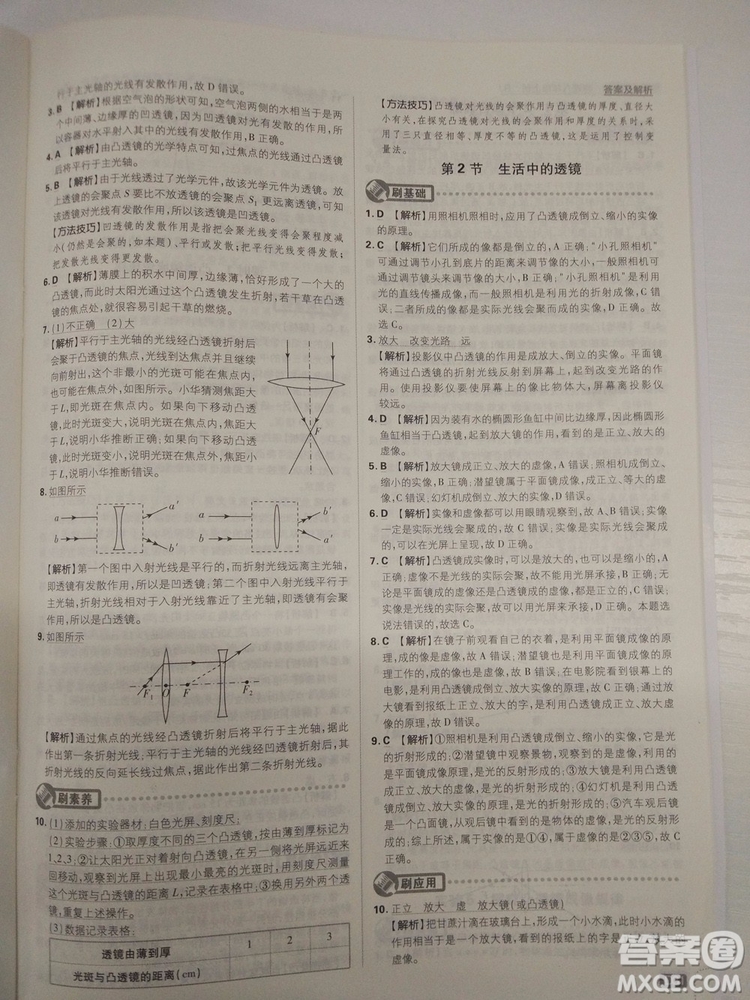 行于主光轴的光线有发散作用，故 D 错误。
3. B 【解析】根据空气泡的形状可知，空气泡两侧的水相当于两个凹透镜，因为凹透镜对光线有发散作用，
所以容器对水平射入其中的光线有发散作用，故 B 正确。
4. A 【解析】由凸透镜的光学特点可知，过焦点的光线经凸透镜折射后将平行于主光轴。
5. B 【解析】由于光线透过了光学元件，故该元件是透镜。放上透镜后的会聚点 S 要比不放透镜的会聚点 S₁ 更远离透镜，可知该透镜对光线有发散作用，故该透镜是凹透镜。
【方法技巧】凹透镜的发散作用是指将光线会聚程度减小（仍然会聚，如本题），平行或发散；将平行光变发散，把发散光变更发散。
6. D 【解析】薄膜上的积水中间厚，边缘薄，恰好形成了一个大的凸透镜，而此时太阳光通过这个凸透镜发生折射，若干草在凸透镜的焦点处，就很容易引起干草的燃烧。
7. (1)不正确 (2)大
【解析】平行于主光轴的光线经凸透镜折射后会聚于凸透镜的焦点，光线到达焦点并继续向前射出，这个非最小的光斑可能在焦点内，也可能在焦点外，如图所示。小华猜测焦距大于L，即光斑在焦点内。如果向下移动凸透镜，此时光斑变大，说明小华推断错误。小明猜测焦距小于L，即光斑在焦点外，如果向下移动凸透镜，此时光斑变小，说明小华推断错误。
F
8. 如图所示
a b a′ b′
a b b′ a′
【解析】第一个图中入射光线是平行的，而折射光线远离主光轴，即透镜有发散作用，所以是凹透镜；第二个图中入射光线平行于主光轴，折射光线相对于入射光线靠近了主光轴，即透镜有会聚作用，所以是凸透镜。
9. 如图所示
F₁ O F F₂
【解析】通过焦点的光线经凸透镜折射后将平行于主光轴，据此作出第一条折射光线。平行于主光轴的光线经凹透镜折射后，折射光线的反向延长线过焦点，据此作出第二条折射光线。
刷素养
10. (1)添加的实验器材：白色光屏、刻度尺；
(2)实验步骤：①取厚度不同的三个凸透镜，由薄到厚标记为1,2,3；②让太阳光正对着凸透镜照射，在另一侧前后移动光屏，直到光屏上呈现最小最亮的光斑时，用刻度尺测量凹屏上的光斑到凸透镜的距离L，记录在表格中；③分别换用2、3凸透镜，重复上面的实验。
(3)数据记录表格：
透镜由薄到厚 1 2 3
光斑与凸透镜的距离(cm)
答案及解析
【方法技巧】凸透镜对光线的会聚作用与凸透镜的厚度、直径大小有关，在探究凸透镜对光线的会聚作用与厚度的关系时，采用了三只直径相等、厚度不等的凸透镜，这是运用了控制变量法。
第 2 节 生活中的透镜
刷基础
1. D 【解析】用照相机照相时，应用了凸透镜成倒立、缩小的实像的原理。
2. C 【解析】它们所成的像都是倒立的，A 正确；“小孔照相机”可通过调节小孔到底片的距离来调节像的大小，而一般照相机可通过调节镜头来调节像的大小，B 正确；“小孔照相机”是利用光的直线传播成像，而一般照相机是利用光的折射成像，C 错误；二者所成的像都是实际光线会聚而成的实像，D 正确。故选 C。
3. 放大 改变光路 远
【解析】投影仪中凸透镜的作用是成放大、倒立的实像。平面镜将凸透镜折射的光线反射到屏幕上，起到改变光路的作用。使用投影仪要使屏幕上的像比物体大，屏幕离投影仪要比较远。
4. D 【解析】因为装有水的椭圆形鱼缸中间比边缘厚，因此椭圆形鱼缸相当于凸透镜，起到放大镜的作用，看到的是正立、放大的虚像，故 D 正确。
5. D 【解析】放大镜成正立、放大的虚像，如图 B；照相机成倒立、缩小的实像，如图 A；潜望镜是平面镜成像，成正立、等大的虚像，如图 C；幻灯机成倒立、放大的实像，如图 D。故 D 正确。
6. D 【解析】实像和虚像都可以用眼睛观察到，故 A 错误；实像一定是实际光线会聚成的，故 B 错误；虚像不是实际光线会聚成的，故 C 错误；实像是实际光线会聚而成的，所以可以在光屏上呈现，故 D 正确。
7. C 【解析】凸透镜成实像时，可以是放大的，也可以是缩小的，A 正确；虚像不是光线会聚而成的，不能用光屏承接，B 正确；无论是平面镜成的虚像还是凸透镜成的虚像，都是正立的，C 错误；实像是实际光线的会聚而成的，可以用光屏承接，D 正确。本题选说法错误的，故选 C。
8. C 【解析】在镜子前观看自己的衣着，是利用平面镜成像的原理，成的像是虚像，故 A 错误；潜望镜也是利用平面镜成像的原理工作的，其成像也是虚像，故 B 错误；在电影院看到银幕上的电影，是利用凸透镜成倒立、放大实像的原理，故 C 正确；用放大镜看到报纸上正立、放大的字，是利用凸透镜成正立、放大虚像的原理，故 D 错误。
9. C 【解析】①照相机照相时，所成的像是实像，是利用凸透镜对光的折射形成的；②潜望镜中观察景物，观察到的是虚像，是利用光的反射形成的；③放大镜看地图时观察到的是虚像，是利用光的折射形成的；④幻灯机幕上的像是实像，是利用凸透镜对光的折射形成的；⑤汽车观后镜中的像是虚像，是利用光的反射形成的；综上所述，是实像的是①④，虚像的是②③⑤，故 C 正确。
刷应用
10. 正立 放大 虚 放大镜(或凸透镜)
【解析】把甘蔗汁滴在玻璃台上，形成一个小水滴，此小水滴
答案圈
MXQE.COM